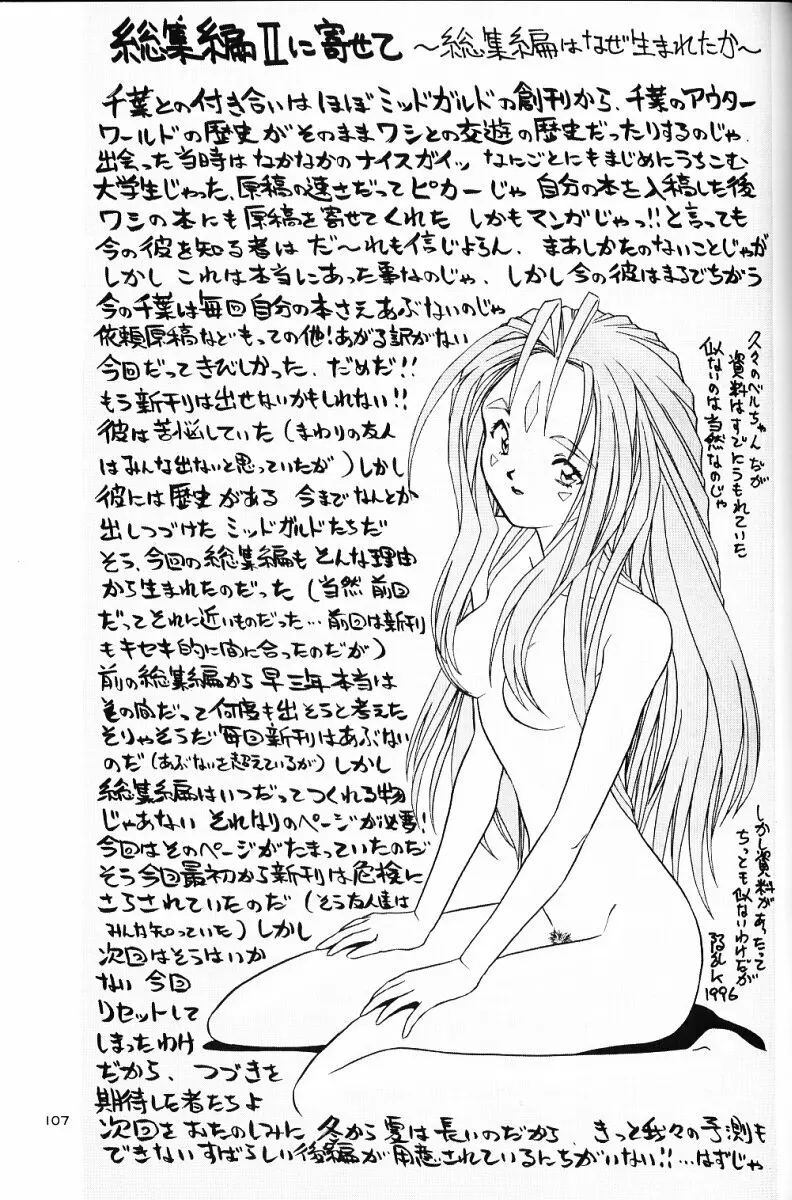 総集編Ⅱに寄せて ～総集編はなぜ生まれたか～
千葉との付き合いはほぼミッドガルドの創刊から、千葉のアウター
ワールドの歴史がそのままワシとの交遊の歴史だったりするのじゃ.
出会った当時はなかなかのナイスガイッ なにごとにもまじめにうちこむ
大学生じゃった、原稿の速さだってピカーじゃ 自分の本を入稿した後
ワシの本にも原稿を寄せてくれた しかもマンガじゃっ!!と言っても
今の彼を知る者は だ～れも信じよろん、まあしかたのないことじゃが
しかし これは本当にあった事なのじゃ、しかし今の彼はまるでちがう
今の千葉は毎回自分の本さえあぶないのじゃ
依頼原稿などもっての他!あがる訳がない
今回だってきびしかった、だめだ!!
もう新刊は出せないかもしれない!!
彼は苦悩していた(まわりの友人
はみんな出ないと思っていたが)しかし
彼には歴史がある 今までなんとか
出しつづけたミッドガルドたちだ
そう、今回の総集編もそんな理由
から生まれたのだった(当然前回
だってそれに近いものだった…前回は新刊
もキセキ的に間に合ったのだが)
前の総集編から早三年本当は
その間だって何度も出そうと考えた
そりゃそうだ毎回新刊はあぶない
のだ(あぶないを超えているが)しかし
総集編はいつだってつくれる物
じゃあない それなりのページが必要!
今回はそのページがたまっていたのだ
そう今回最初から新刊は危険に
さらされていたのだ(そう友人達は
みんな知っていた)しかし
次回はそうはいか
ない 今回
リセットして
しまったわけ
だから、つづきを
期待した者たちよ
次回をおたのしみに 冬から夏は長いのだから、きっと我々の予測も
できないすばらしい後編が用意されているにちがいない!!…はずじゃ
久々のベルちゃんだが
資料はすでにうもれていた
似ないのは当然なのじゃ
しかし資料があったって
ちっとも似ないわけだが
1996
107